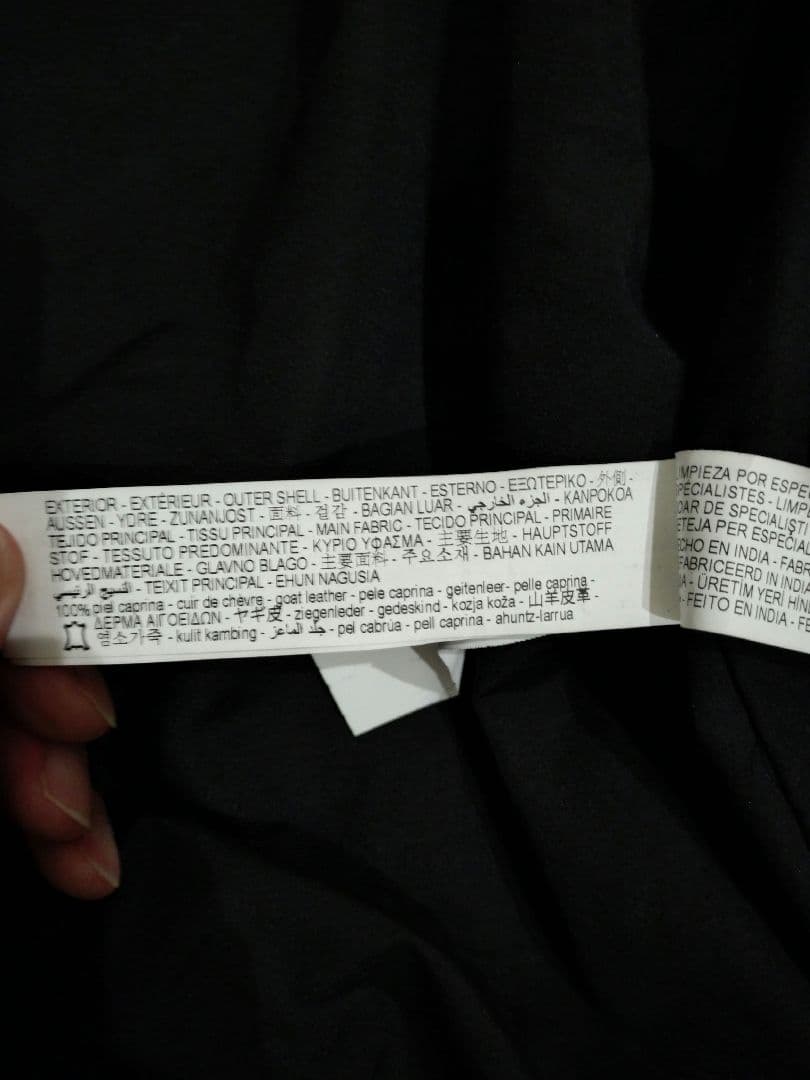 EXTERIOR - EXTÉRIEUR - OUTER SHELL - BUITENKANT - ESTERNO - ΕΞΩΤΕΡΙΚΟ - 外側 -
AUSSEN - YDRE - ZUNANJOST - 面料 - 겉감 - BAGIAN LUAR - الجزء الخارجي - KANPOKOA
TEJIDO PRINCIPAL - TISSU PRINCIPAL - MAIN FABRIC - TECIDO PRINCIPAL - PRIMAIRE
STOF - TESSUTO PREDOMINANTE - ΚΥΡΙΟ ΥΦΑΣΜΑ - 主要生地 - HAUPTSTOFF
HOVEDMATERIALE - GLAVNO BLAGO - 主要面料 - 주요소재 - BAHAN KAIN UTAMA
النسيج الرئيسي - TEIXIT PRINCIPAL - EHUN NAGUSIA
100% piel caprina - cuir de chèvre - goat leather - pele caprina - geitenleer - pelle caprina -
ΔΕΡΜΑ ΑΙΓΟΕΙΔΩΝ - ヤギ皮 - ziegenleder - gedeskind - kozja koža - 山羊皮革 -
염소가죽 - kulit kambing - جلد الماعز - pel cabrúa - pell caprina - ahuntz-larrua
IMPIEZA POR ESPE
PÉCIALISTES - LIMPE
DAR DE SPECIALIST
ETEJA PER ESPECIA
CHO EN INDIA - FABR
FABRICEERD IN INDIA
A - ÜRETİM YERİ HİN
- FEITO EN INDIA - FE